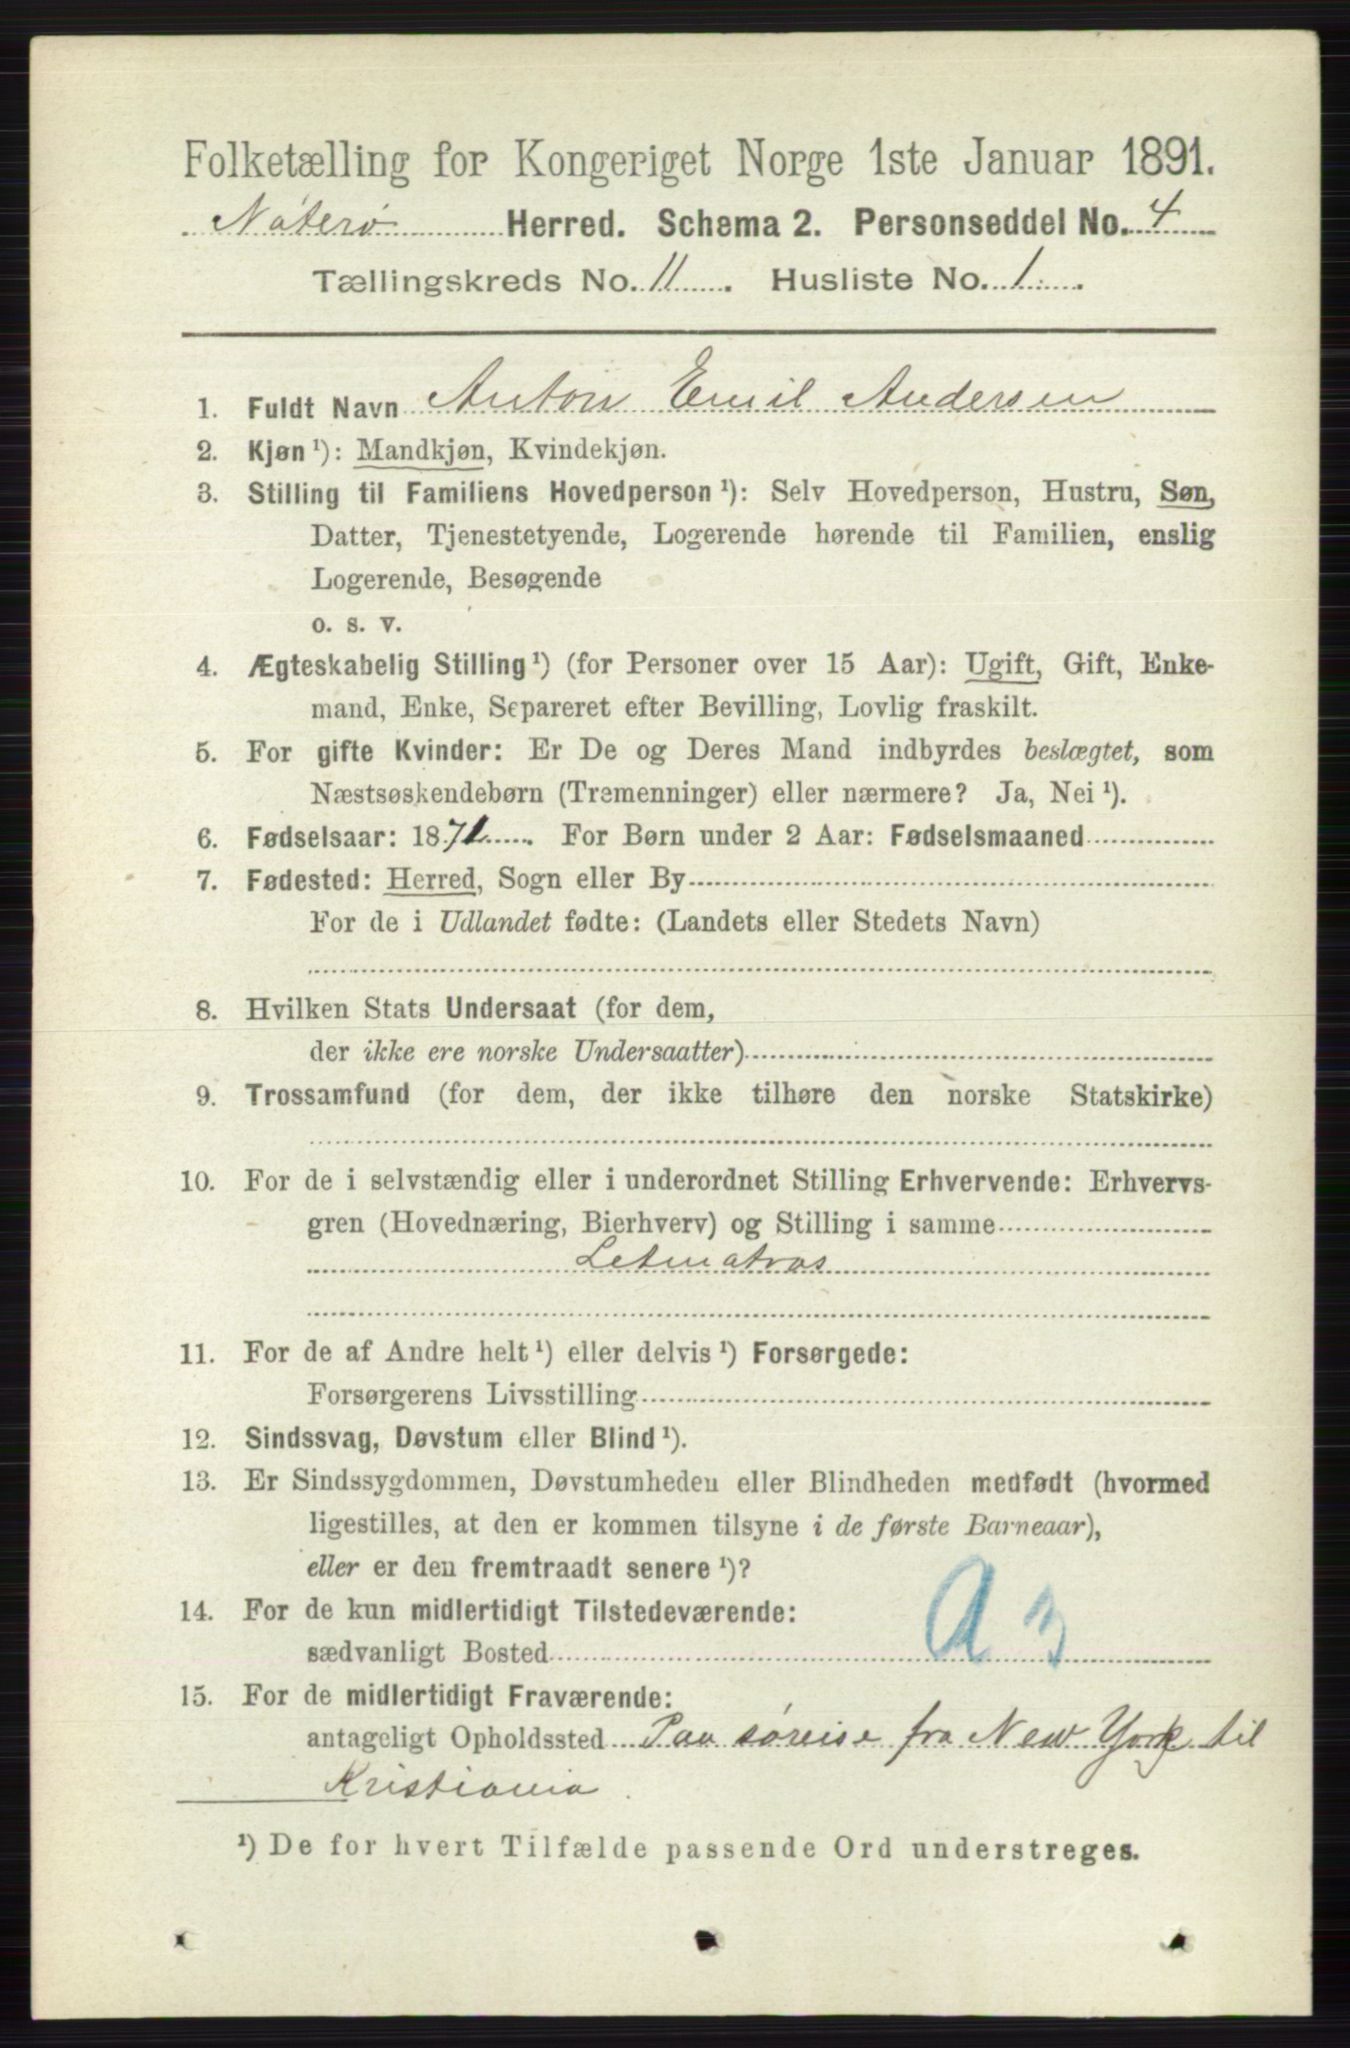 Folketælling for Kongeriget Norge 1ste Januar 1891.
Nøterø Herred. Schema 2. Personseddel No. 4
Tællingskreds No. 11. Husliste No. 1.
1. Fuldt Navn Anton Emil Andersen
2. Kjøn¹): Mandkjøn, Kvindekjøn.
3. Stilling til Familiens Hovedperson¹): Selv Hovedperson, Hustru, Søn,
Datter, Tjenestetyende, Logerende hørende til Familien, enslig
Logerende, Besøgende
o. s. v.
4. Ægteskabelig Stilling¹) (for Personer over 15 Aar): Ugift, Gift, Enke-
mand, Enke, Separeret efter Bevilling, Lovlig fraskilt.
5. For gifte Kvinder: Er De og Deres Mand indbyrdes beslægtet, som
Næstsøskendebørn (Tremenninger) eller nærmere? Ja, Nei¹).
6. Fødselsaar: 1871. For Børn under 2 Aar: Fødselsmaaned
7. Fødested: Herred, Sogn eller By
For de i Udlandet fødte: (Landets eller Stedets Navn)
8. Hvilken Stats Undersaat (for dem,
der ikke ere norske Undersaatter)
9. Trossamfund (for dem, der ikke tilhøre den norske Statskirke)
10. For de i selvstændig eller i underordnet Stilling Erhvervende: Erhvervs-
gren (Hovednæring, Bierhverv) og Stilling i samme
Letmatros
11. For de af Andre helt¹) eller delvis¹) Forsørgede:
Forsørgerens Livsstilling
12. Sindssvag, Døvstum eller Blind¹).
13. Er Sindssygdommen, Døvstumheden eller Blindheden medfødt (hvormed
ligestilles, at den er kommen tilsyne i de første Barneaar),
eller er den fremtraadt senere¹)?
14. For de kun midlertidigt Tilstedeværende:
sædvanligt Bosted A 3
15. For de midlertidigt Fraværende:
antageligt Opholdssted Paa søreise fra New York til
Kristiania.
¹) De for hvert Tilfælde passende Ord understreges.